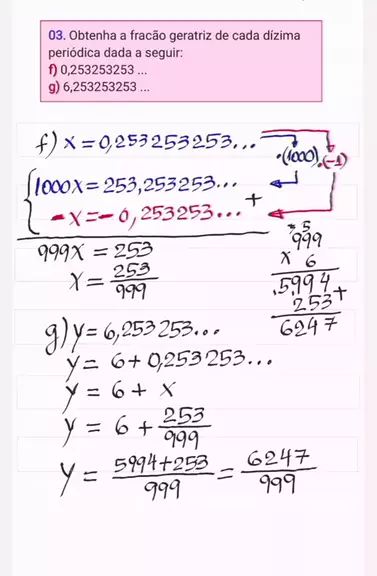 03. Obtenha a fracão geratriz de cada dízima
periódica dada a seguir:
f) 0,253253253 ...
g) 6,253253253 ...
f) x = 0,253253253... .(1000) .(-1)
1000x = 253,253253...
-x = -0,253253... +
999x = 253
x = 253/999
5
999
x 6
5994
253+
6247
g) y = 6,253253...
y = 6 + 0,253253...
y = 6 + x
y = 6 + 253/999
y = 5994+253/999 = 6247/999